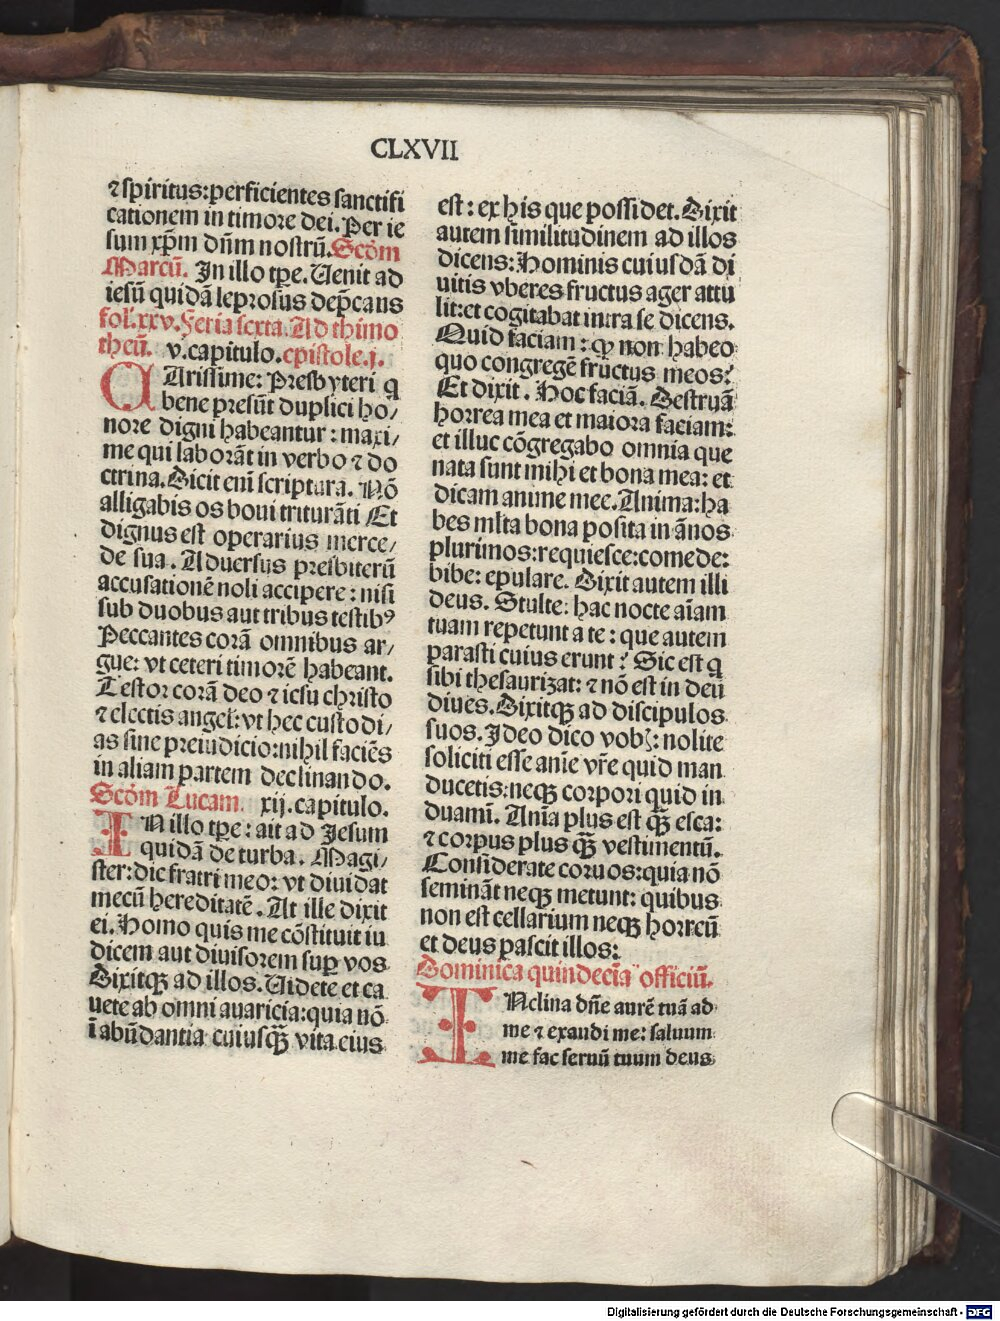 CLXVII
⁊ spiritus: perficientes sanctifi
cationem in timore dei. Per ie
sum xp̄m dn̄m nostrū. Scd̄m
Marcū. In illo tp̄e. Uenit ad
iesū quidā leprosus dep̄cans
fol. xxv. Feria sexta. Ad thimo
theū. v. capitulo. epistole. j.
CArissime: Presbyteri q
bene presūt duplici ho/
nore digni habeantur: maxi/
me qui laborāt in verbo ⁊ do
ctrina. Dicit eni scriptura. Nō
alligabis os boui triturāti Et
dignus est operarius merce/
de sua. Aduersus presbiterū
accusationē noli accipere: nisi
sub duobus aut tribus testibꝰ
Peccantes corā omnibus ar/
gue: vt ceteri timorē habeant.
Testor corā deo ⁊ iesu christo
⁊ electis angeł: vt hec custodi/
as sine preiudicio: nihil faciēs
in aliam partem declinando.
Scd̄m Lucam. xij. capitulo.
IN illo tp̄e: ait ad Jesum
quidā de turba. Magi/
ster: dic fratri meo: vt diuidat
mecū hereditatē. At ille dixit
ei. Homo quis me cōstituit iu
dicem aut diuisorem sup̱ vos
Dixitqꝫ ad illos. Uidete et ca
uete ab omni auaricia: quia nō
ī abūdantia cuiusqꝫ̄ vita eius
est: ex his que possidet. Dixit
autem similitudinem ad illos
dicens: Hominis cuiusdā di
uitis vberes fructus ager attu
lit: et cogitabat intra se dicens.
Quid faciam: qꝫ non habeo
quo congregē fructus meos?
Et dixit. Hoc faciā. Destruā
horrea mea et maiora faciam:
et illuc cōgregabo omnia que
nata sunt mihi et bona mea: et
dicam anime mee. Anima: ha
bes ml̄ta bona posita in ānos
plurimos: requiesce: comede:
bibe: epulare. Dixit autem illi
deus. Stulte: hac nocte aīam
tuam repetunt a te: que autem
parasti cuius erunt? Sic est q
sibi thesaurizat: ⁊ nō est in deū
diues. Dixitqꝫ ad discipulos
suos. Ideo dico vobꝭ: nolite
soliciti esse anīe vr̄e quid man
ducetis: neqꝫ corpori quid in
duamī. Anīa plus est qꝫ̄ esca:
⁊ corpus plus qꝫ̄ vestimentū.
Considerate coruos: quia nō
semināt neqꝫ metunt: quibus
non est cellarium neqꝫ horreū
et deus pascit illos:
Dominica quindecīa officiū.
INclina dn̄e aurē tuā ad
me ⁊ exaudi me: saluum
me fac seruū tuum deus
Digitalisierung gefördert durch die Deutsche Forschungsgemeinschaft - DFG